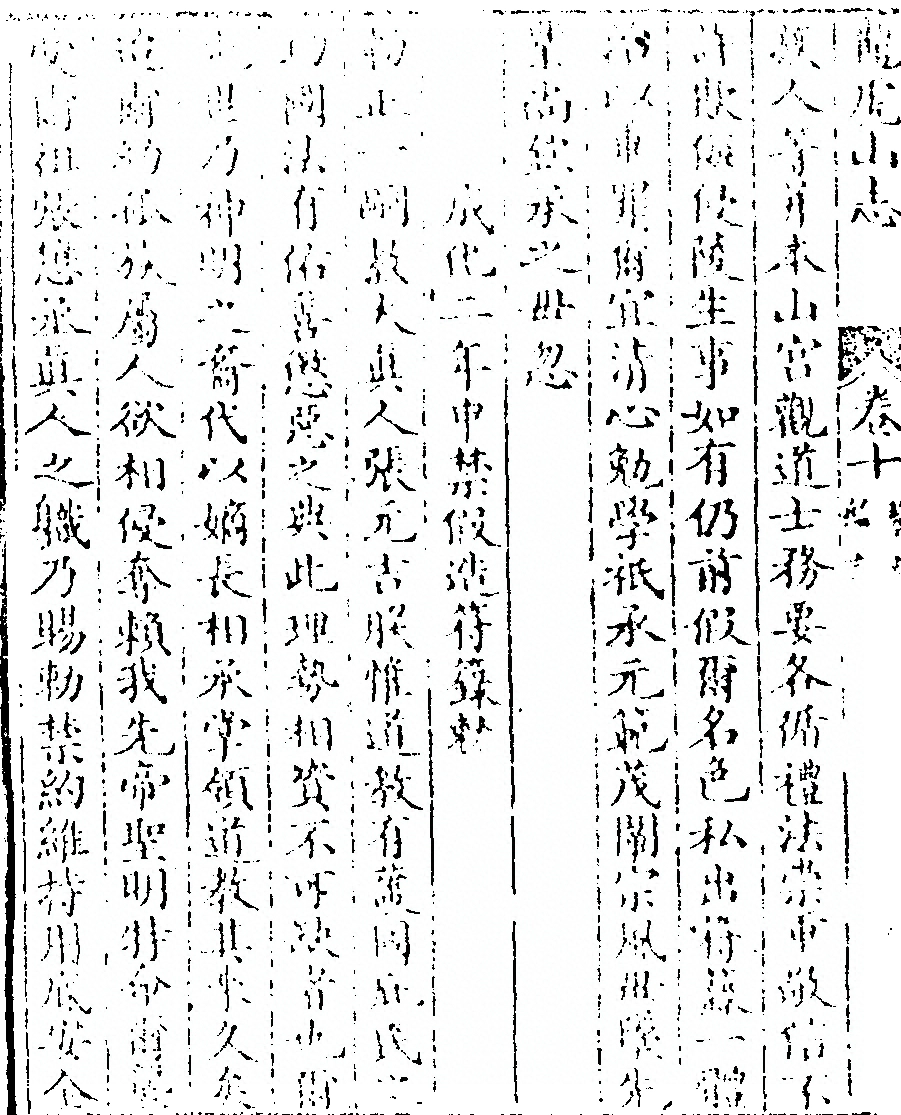 龍虎山志 卷十
族人等并本山宮觀道士務要各脩禮法崇重敬信不
許欺侮侵陵生事如有仍前假爾名色私出符籙一體
治以重罪爾宜清心勉學祗承元範茂闡宗風毋墜先
業尚欽承之毋忽
成化二年申禁假造符籙敕
勅正一嗣教大真人張元吉朕惟道教有蔭國庇民之
功國法有佑善懲惡之典此理勢相資不可缺者也爾
世乃神明之裔代以嫡長相承掌領道教其來久矣
爾幼孤族屬人欲相侵奪賴我先帝聖明特命爾
爾祖張懋丞真人之職乃賜勅禁約維持用底安全